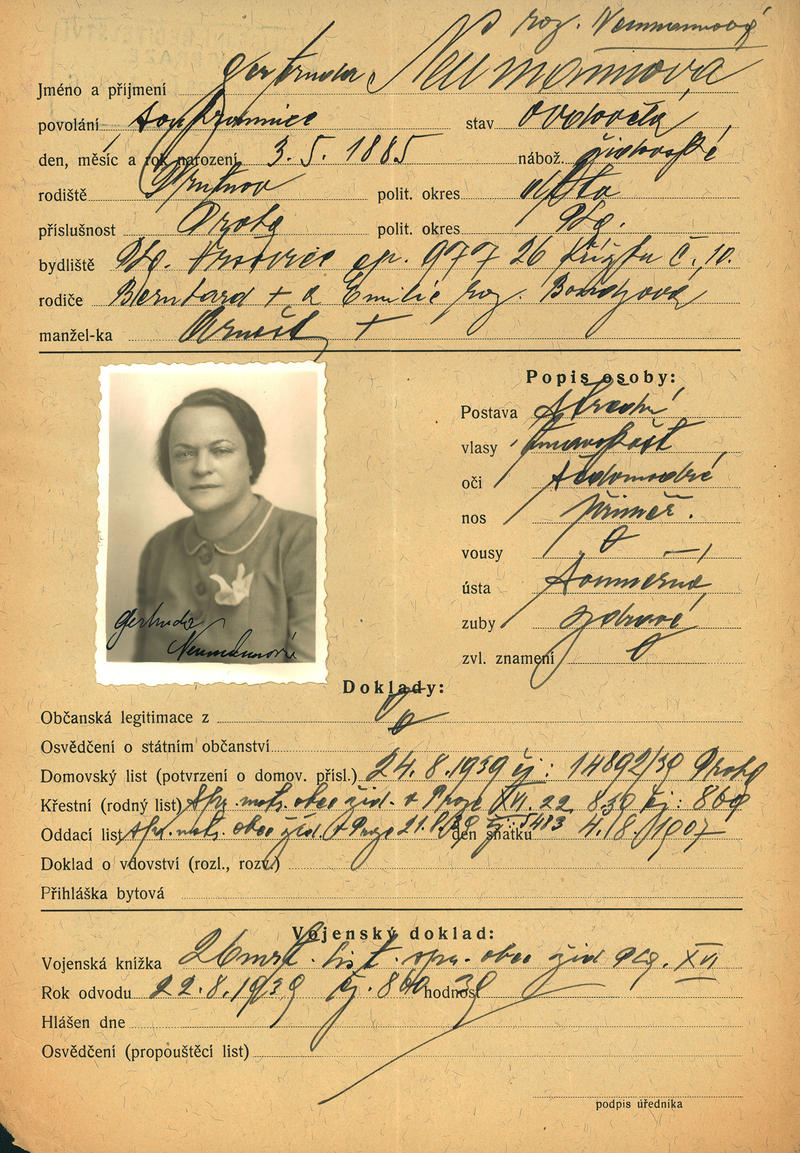 roz. Neumannová
Jméno a příjmení Gertruda Neumannová
povolání soukromnice stav ovdovělá
den, měsíc a rok narození 3. 5. 1885 nábož. židovské
rodiště Trutnov polit. okres
příslušnost Praha polit. okres Phg.
bydliště Phg. Vršovice čp. 977 26 č. 10.
rodiče Bernhard + a Emilie roz. Bondyová
manžel-ka Arnošt +
Popis osoby:
Postava střední
vlasy tmavohšt
oči šedomodré
nos přiměř.
vousy 0
ústa souměrná
zuby zdravé
zvl. znamení 0
Gertruda
Neumannová
Doklady:
Občanská legitimace z 0
Osvědčení o státním občanství
Domovský list (potvrzení o domov. přísl.) 24. 8. 1939 čj: 14892/39 Praha
Křestní (rodný list) Spr. mat. obce žid. v Praze XVI. 22 8.39 čj: 860
Oddací list Spr. mat. obce žid. v Praze 21.8.39 čj: 5483 den sňatku 4./8./1907
Doklad o vdovství (rozl., rozv.)
Přihláška bytová
Vojenský doklad:
Vojenská knížka list. spr. obce žid Phg. XVI
Rok odvodu 22. 8. 1939 čj. 860 hodnost 39
Hlášen dne
Osvědčení (propouštěcí list)
podpis úředníka